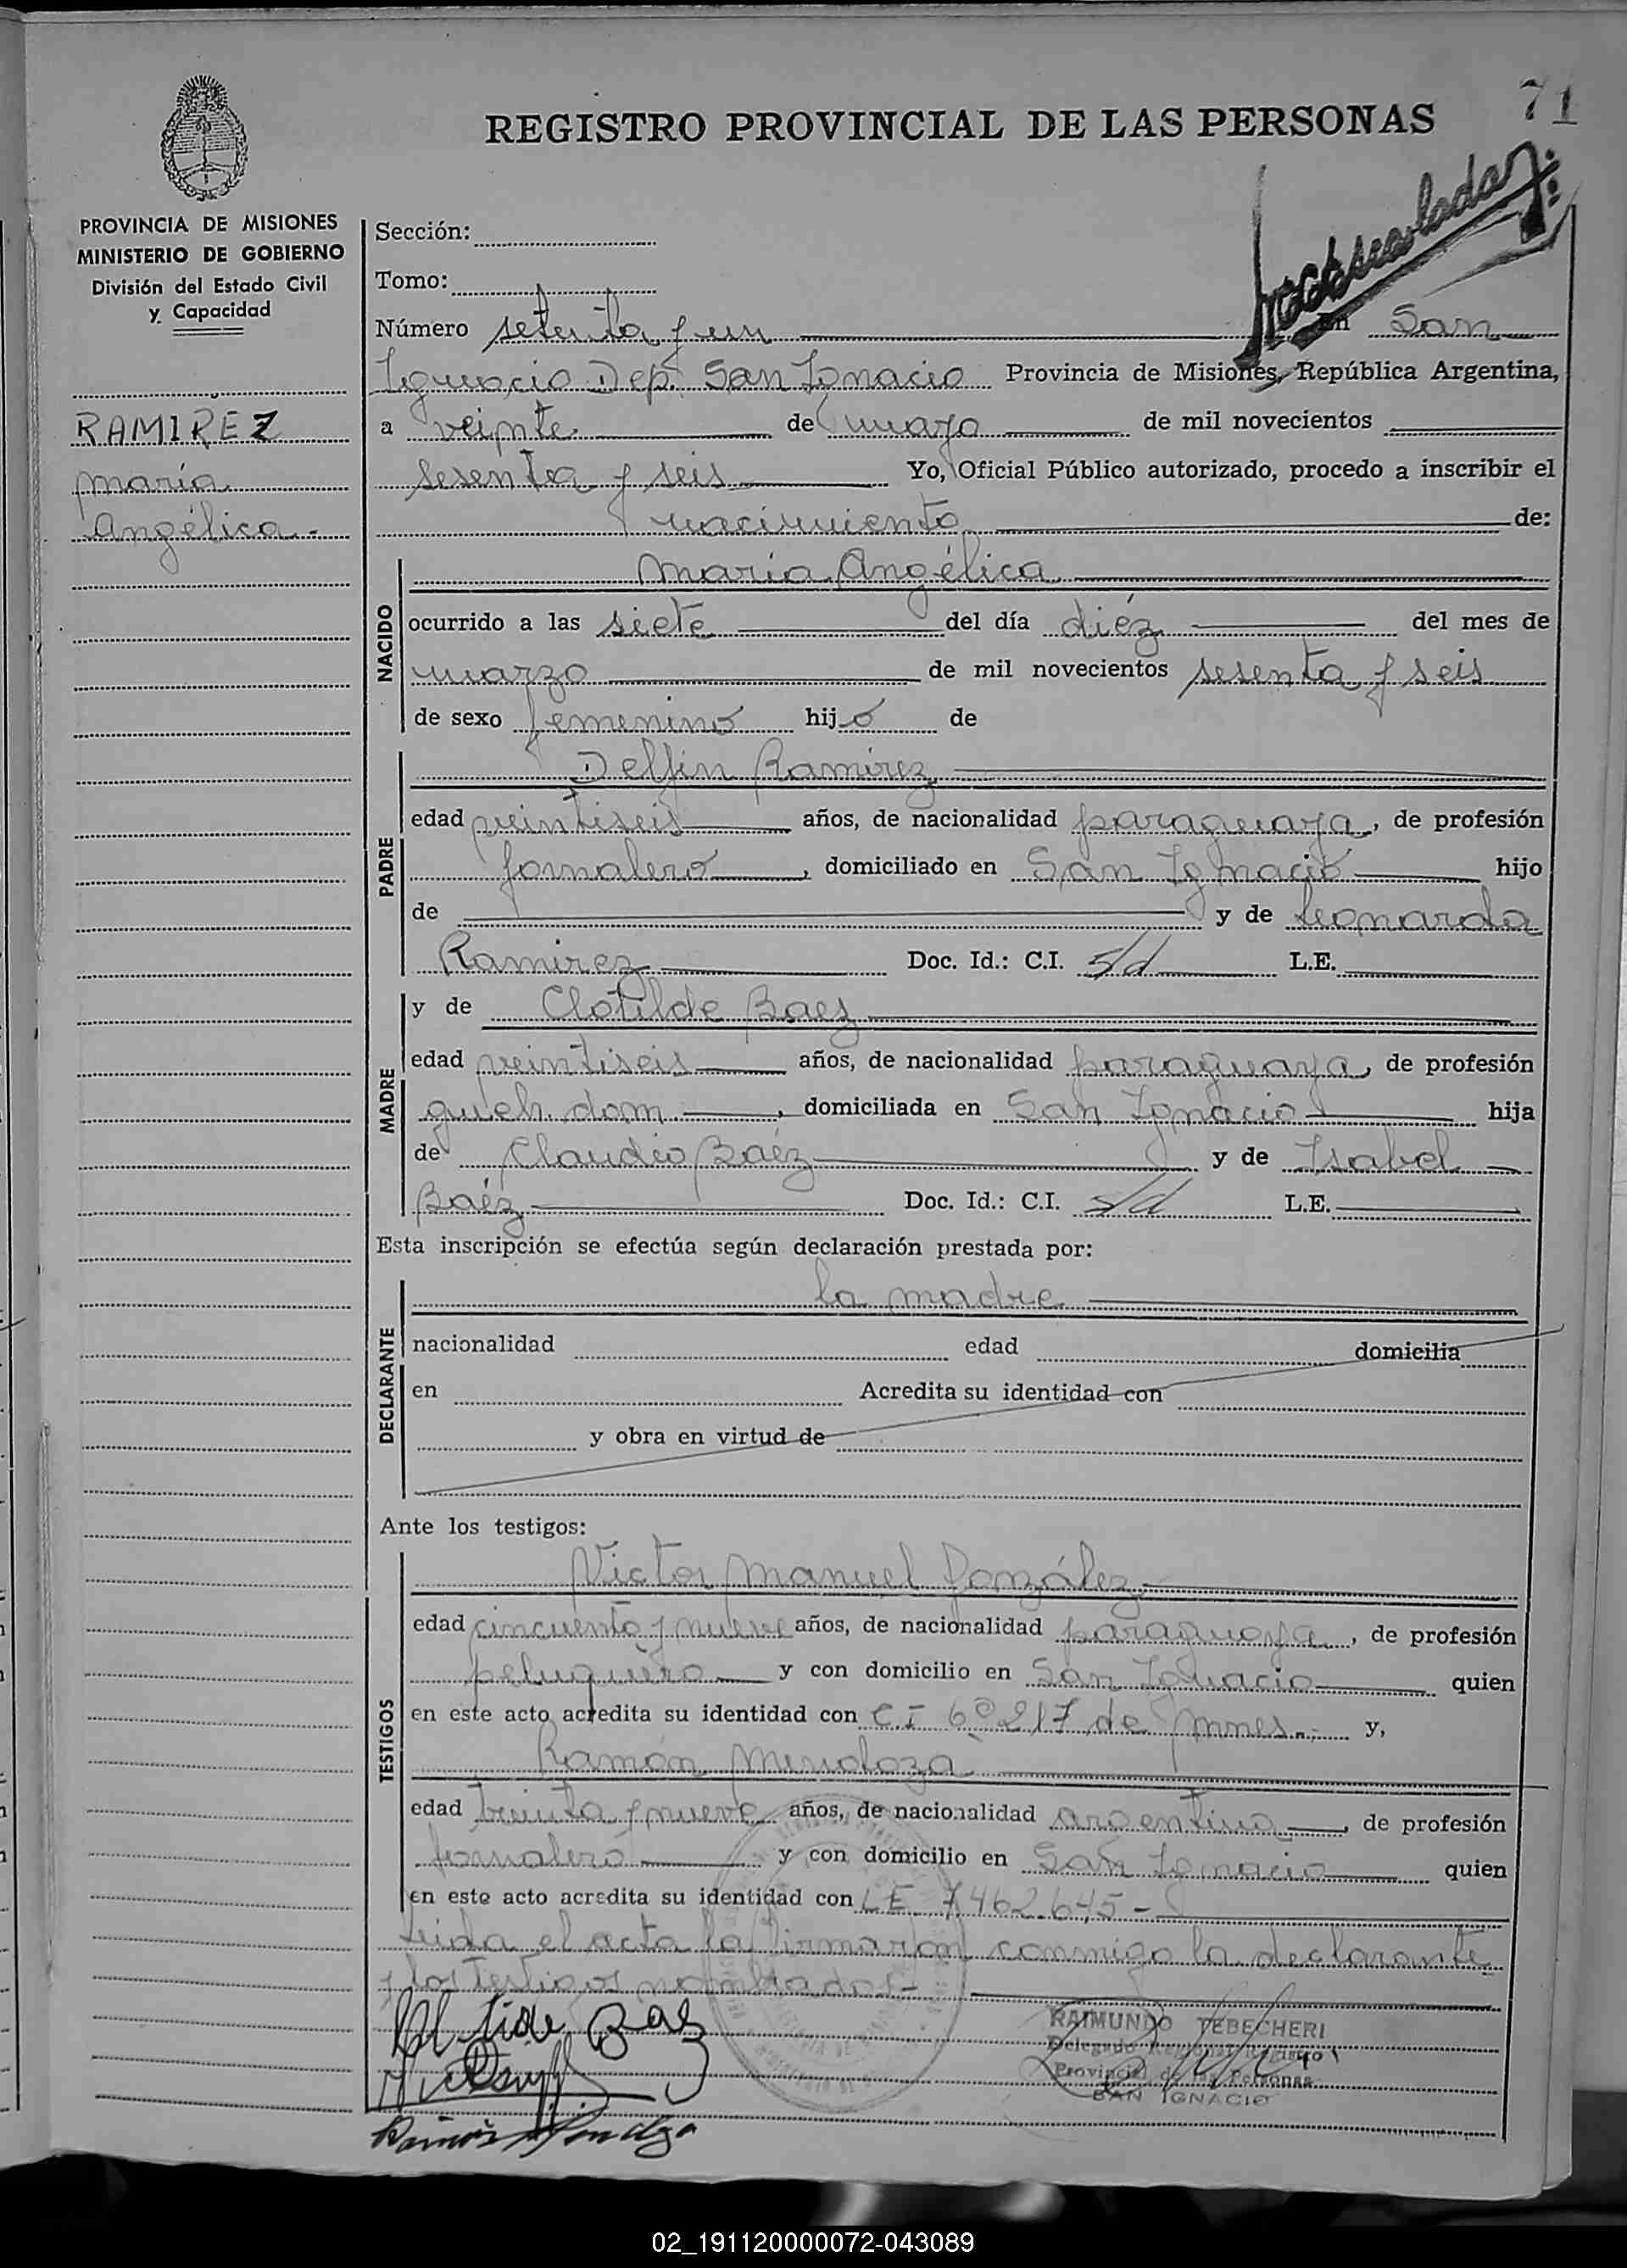 71
REGISTRO PROVINCIAL DE LAS PERSONAS
PROVINCIA DE MISIONES
MINISTERIO DE GOBIERNO
División del Estado Civil
y Capacidad
RAMIREZ
María
Angélica.-
Sección:
Tomo:
Número setenta y un en San
Ignacio Dep. San Ignacio Provincia de Misiones, República Argentina,
a veinte de mayo de mil novecientos
sesenta y seis Yo, Oficial Público autorizado, procedo a inscribir el
nacimiento de:
NACIDO
María Angélica
ocurrido a las siete del día diéz del mes de
marzo de mil novecientos sesenta y seis
de sexo femenino hijo de
PADRE
Delfin Ramirez
edad veintiseis años, de nacionalidad paraguaya, de profesión
jornalero, domiciliado en San Ignacio hijo
de y de Leonarda
Ramirez Doc. Id.: C.I. s/d L.E.
MADRE
y de Clotilde Baez
edad veintiseis años, de nacionalidad paraguaya, de profesión
queh. dom, domiciliada en San Ignacio hija
de Claudio Baéz y de Isabel
Baéz Doc. Id.: C.I. s/d L.E.
Esta inscripción se efectúa según declaración prestada por:
DECLARANTE
la madre
nacionalidad edad domicilia
en Acredita su identidad con
y obra en virtud de
Ante los testigos:
TESTIGOS
Victor Manuel González
edad cincuenta y nueve años, de nacionalidad paraguaya, de profesión
peluquero y con domicilio en San Ignacio quien
en este acto acredita su identidad con C.I de y,
Ramón Mendoza
edad treinta y nueve años, de nacionalidad argentina, de profesión
jornalero y con domicilio en San Ignacio quien
en este acto acredita su identidad con LE 7462.645-
Leida el acta la firmaron conmigo la declarante
y los testigos nombrados-
Clotilde Baez
Ramón Mendoza
RAIMUNDO TEBECHERI
Delegado Registro
Provincial de las Personas
SAN IGNACIO
02_191120000072-043089